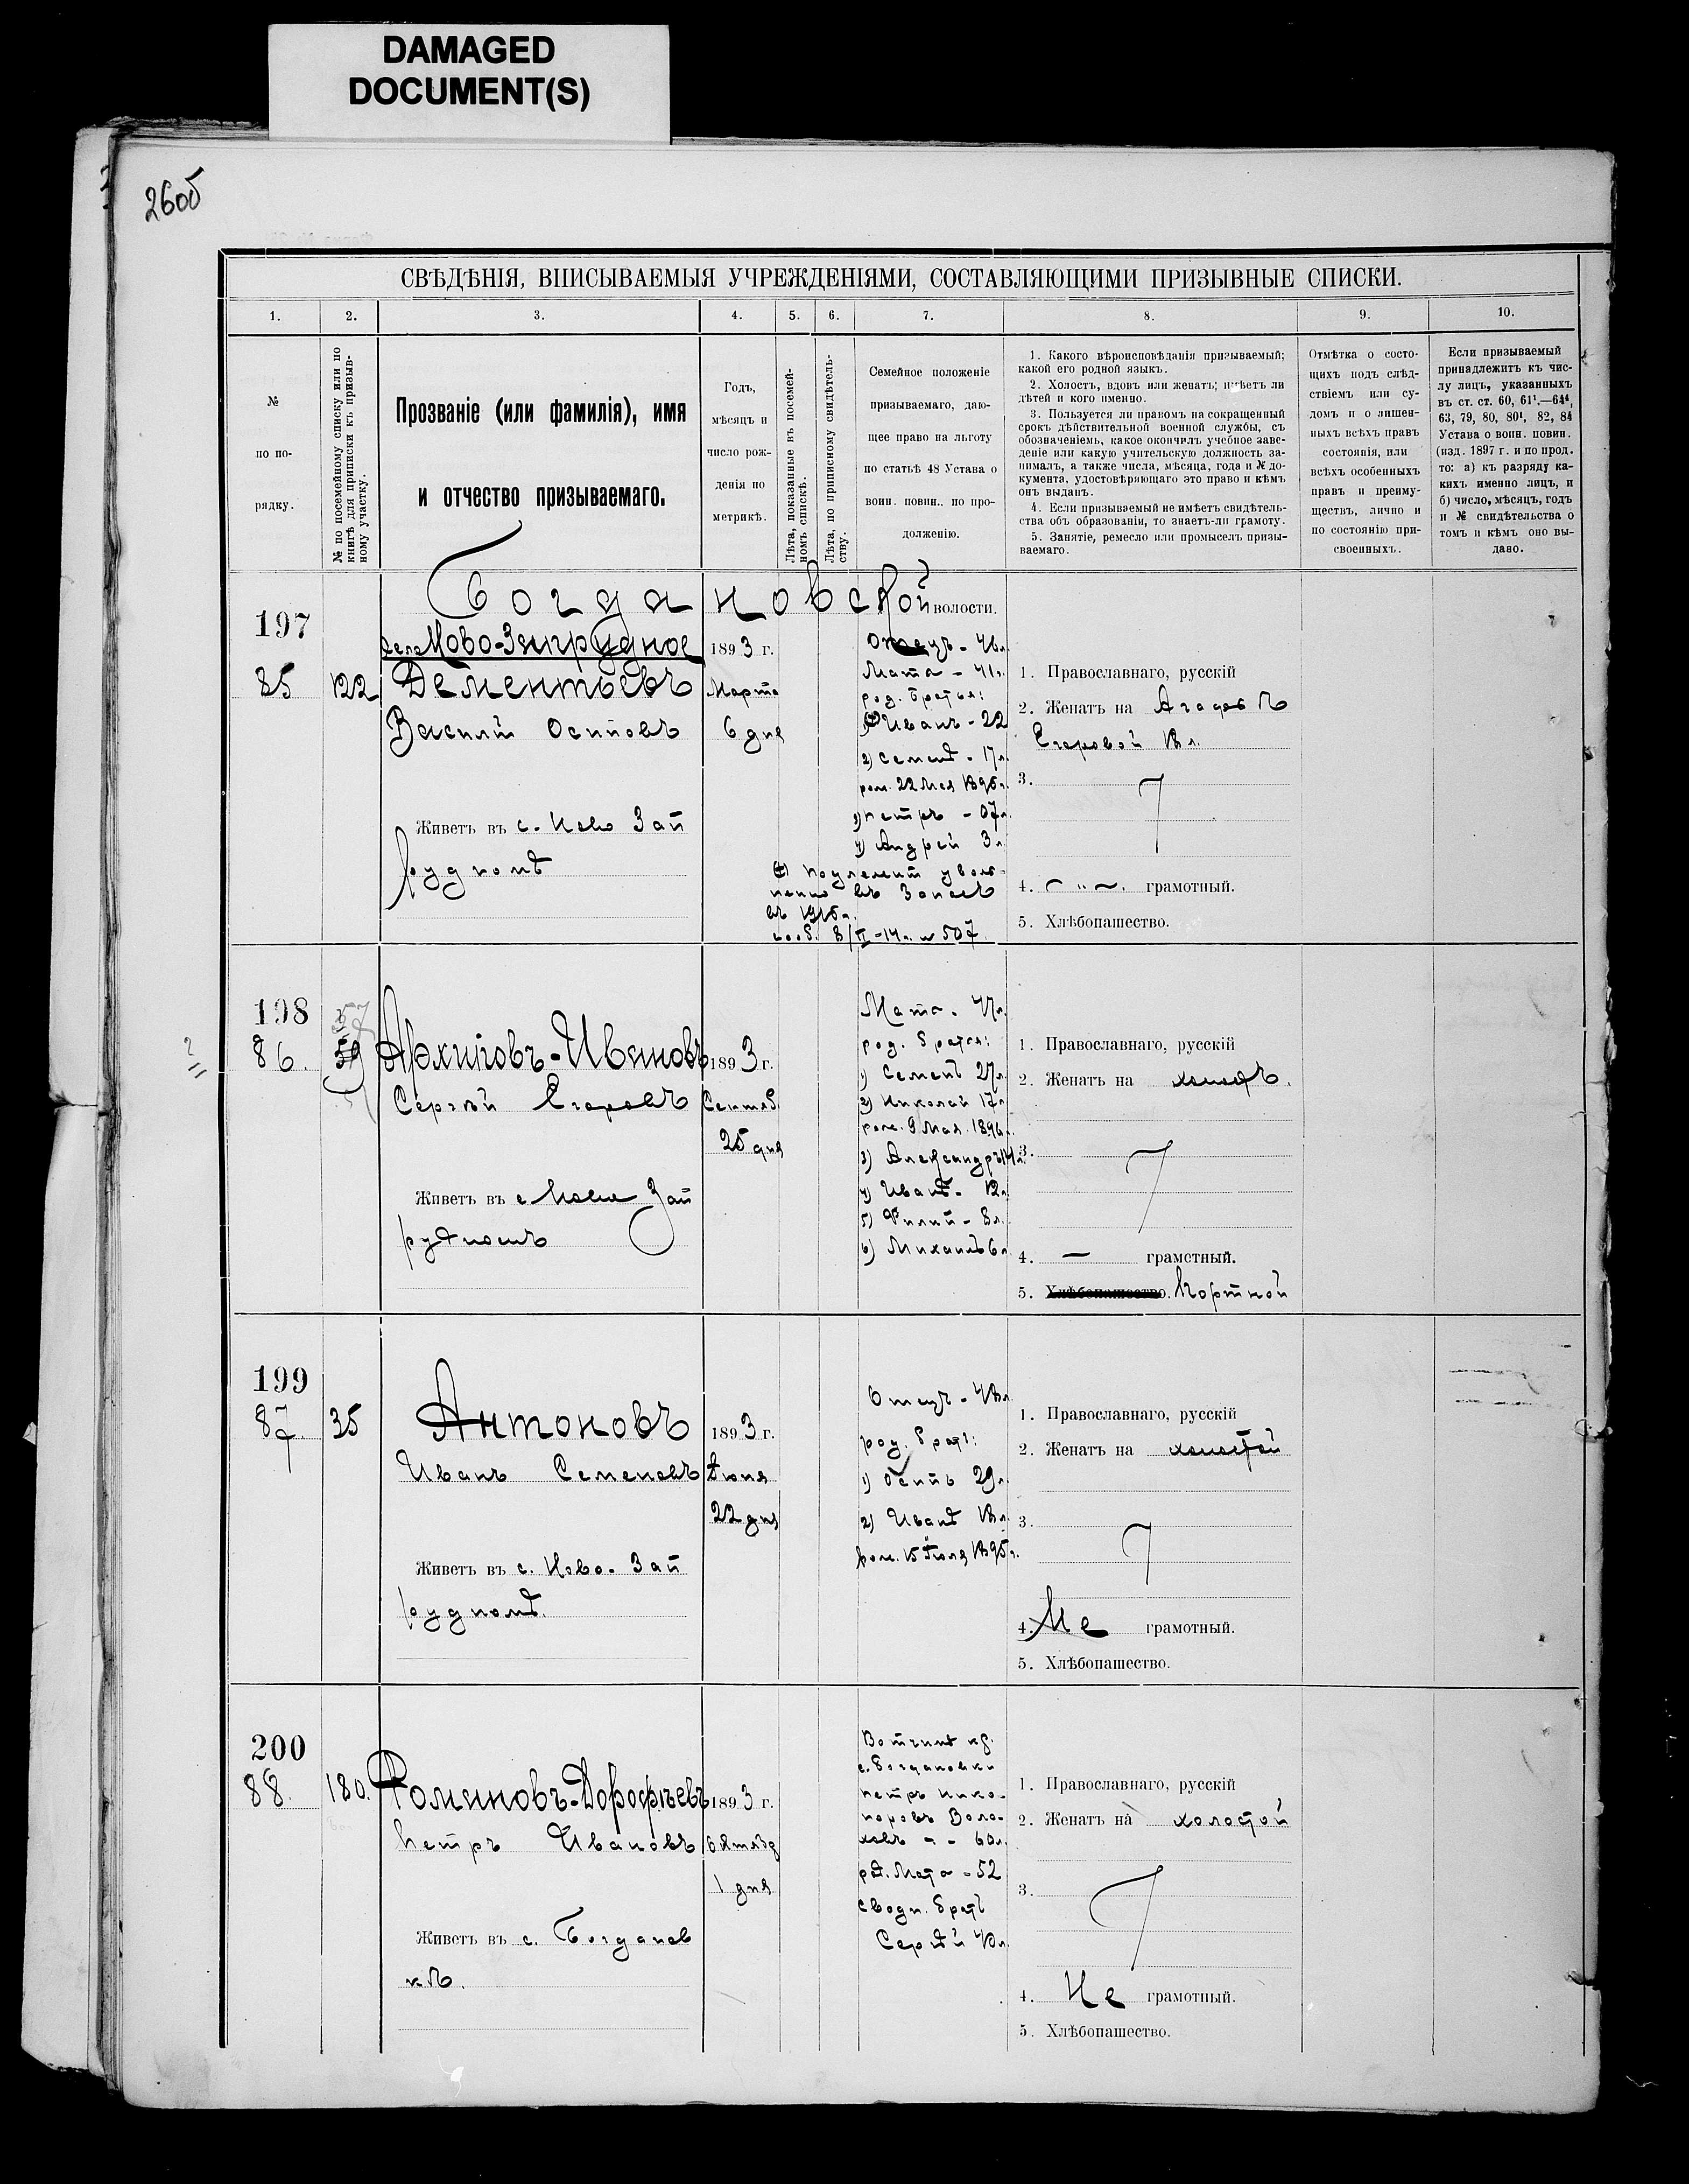 DAMAGED
DOCUMENT(S)
260об
СВѢДѢНІЯ, ВПИСЫВАЕМЫЯ УЧРЕЖДЕНІЯМИ, СОСТАВЛЯЮЩИМИ ПРИЗЫВНЫЕ СПИСКИ.
1. 2. 3. 4. 5. 6. 7. 8. 9. 10.
№
по по-
рядку.
№ по посемейному списку или по
книгѣ для приписки къ призыв-
ному участку.
Прозваніе (или фамилія), имя
и отчество призываемаго.
Годъ,
мѣсяцъ и
число рож-
денія по
метрикѣ.
Лѣта, показанные въ посемей-
номъ спискѣ.
Лѣта, по приписному свидѣтель-
ству.
Семейное положеніе
призываемаго, даю-
щее право на льготу
по статьѣ 48 Устава о
воин. повин.. по про-
долженію.
1. Какого вѣроисповѣданія призываемый;
какой его родной языкъ.
2. Холостъ, вдовъ или женатъ; имѣетъ ли
дѣтей и кого именно.
3. Пользуется ли правомъ на сокращенный
срокъ дѣйствительной военной службы, съ
обозначеніемъ, какое окончилъ учебное заве-
деніе или какую учительскую должность за-
нималъ, а также числа, мѣсяца, года и № до-
кумента, удостовѣряющаго это право и кѣмъ
онъ выданъ.
4. Если призываемый не имѣетъ свидѣтель-
ства объ образованіи, то знаетъ-ли грамоту.
5. Занятіе, ремесло или промыселъ призы-
ваемаго.
Отмѣтка о состо-
щихъ подъ слѣд-
ствіемъ или су-
домъ и о лишен-
ныхъ всѣхъ правъ
состоянія, или
всѣхъ особенныхъ
правъ и преиму-
ществъ, лично и
по состоянію при-
своенныхъ.
Если призываемый
принадлежитъ къ чис-
лу лицъ, указанныхъ
въ ст. ст. 60, 61¹.—64⁴,
63, 79, 80, 80¹, 82, 84
Устава о воин. повин.
(изд. 1897 г. и по прод.
то: а) къ разряду ка-
кихъ именно лицъ, и
б) число, мѣсяцъ, годъ
и № свидѣтельства о
томъ и кѣмъ оно вы-
дано.
Богдановской волости.
197
85
122
село Ново-Запрудное
Дементьевъ
Василій Осиповъ
Живетъ въ с. Ново Зап
рудномъ
1893 г.
Марта
6 дня
Отецъ - 46 л.
Мать - 41 л.
род. братья:
Иванъ - 22
2) Семенъ - 17 л.
рож. 22 Мая 1896 г.
3) Петръ - 07 л.
4) Андрей 3 л.
въ Запасъ
№ 507
1. Православнаго, русскій
2. Женатъ на Агафьѣ
Егоровой 18 л.
3.
4. грамотный.
5. Хлѣбопашество.
198
86.
57
59
Архиповъ-Ивановъ
Сергѣй Егоровъ
Живетъ въ с Ново Зап
рудномъ
1893 г.
Сентяб.
25 дня
Мать - 47 л.
род. братья:
1) Семенъ 27 л.
2) Николай 17 л
рож. 9 Мая 1896 г.
3) Александръ 14 л.
4) Иванъ - 12 л.
5) Филип - 8 л.
6) Михаилъ 6 л.
1. Православнаго, русскій
2. Женатъ на холостъ.
3.
4. — грамотный.
5. Хлѣбопашество. Портной
199
87
35
Антоновъ
Иванъ Семеновъ
Живетъ въ с. Ново-Зап
рудномъ.
1893 г.
Іюня
22 дня
Отецъ - 48 л.
род. брат:
1) Осипъ 29 л.
2) Иванъ 18 л.
рож. 15 Іюля 1895 г.
1. Православнаго, русскій
2. Женатъ на холостой
3.
4. Не грамотный.
5. Хлѣбопашество.
200
88.
180.
Романовъ-Дорофѣевъ
Петръ Ивановъ
Живетъ въ с. Богданов
кѣ.
1893 г.
Октябр
1 дня
Вотчимъ кр.
с. Богдановки
Петръ Ника-
норовъ Воло-
ховъ - - 60 л.
род. Мать - 52
сводн. братъ
Сергѣй
1. Православнаго, русскій
2. Женатъ на холостой
3.
4. Не грамотный.
5. Хлѣбопашество.